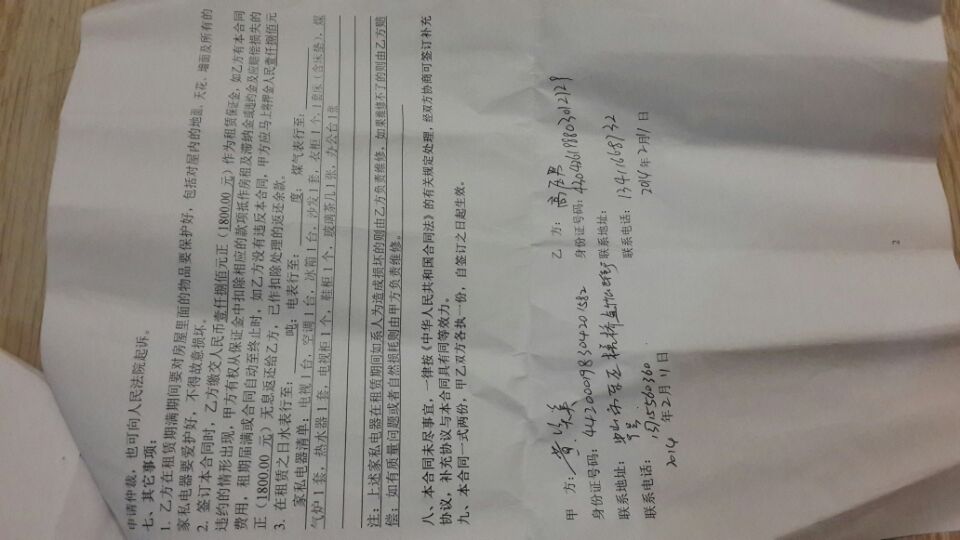 申请仲裁，也可向人民法院起诉。
七、其它事项：
1. 乙方在租赁期满期间要对房屋里面的物品要保护好，包括对屋内的地面、天花、墙面及所有的
家私电器要爱护好，不得故意损坏。
2. 签订本合同时，乙方缴交人民币壹仟捌佰元正（1800.00 元）作为租赁保证金，如乙方有本合同
违约的情形出现，甲方有权从保证金中扣除相应的款项抵作房租及滞纳金或违约金及应赔偿损失的
费用，租期届满或合同自动至终止时，如乙方没有违反本合同，甲方应马上将押金人民壹仟捌佰元
正（1800.00 元）无息返还给乙方，已作扣除处理的返还余款。
3. 在租赁之日水表行至： 吨；电表行至： 度；煤气表行至：
家私电器清单：电视 1 台，空调 1 台，冰箱 1 台，沙发 1 套，衣柜 1 个，1 套床（含床垫），煤
气炉 1 套，热水器 1 套，电视柜 1 个，鞋柜 1 个，玻璃茶几 1 张，办公台 1 张
注：上述家私电器在租赁期间如系人为造成损坏的则由乙方负责维修，如果维修不了的则由乙方赔
偿；如有质量问题或者自然损耗则由甲方负责维修。
八、本合同未尽事宜，一律按《中华人民共和国合同法》的有关规定处理，经双方协商可签订补充
协议，补充协议与本合同具有同等效力。
九、本合同一式两份，甲乙双方各执一份，自签订之日起生效。
甲 方：黄 美
身份证号码：442000198304201582
联系地址：中山市东区 桥
号
联系电话：1515560360
2014 年 2 月 11 日
乙 方：高
身份证号码：420426198803012129
联系地址：
联系电话：13411668732
2014 年 2 月 11 日
2